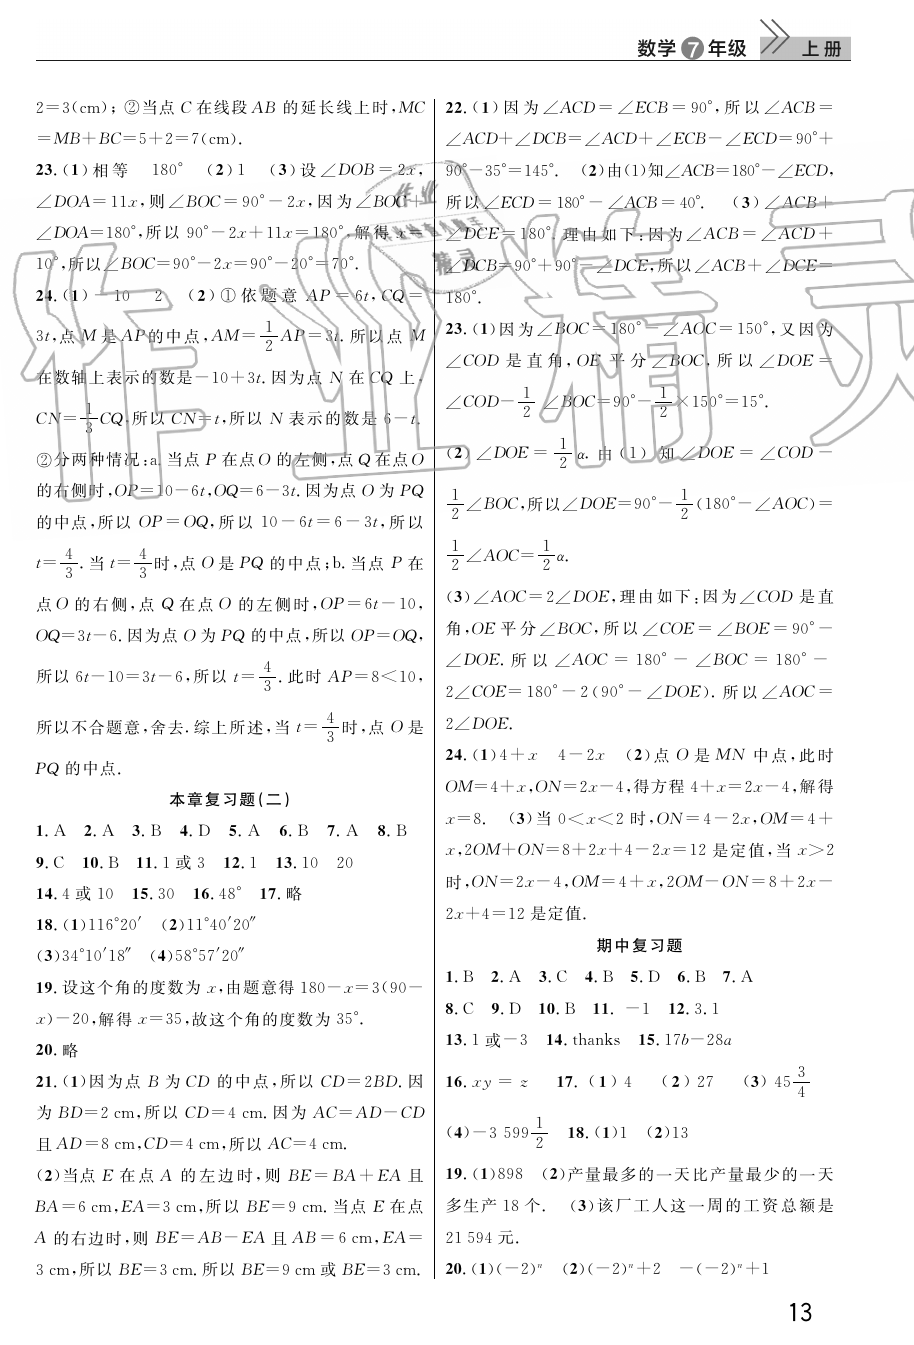 数学 7 年级 上册
2=3(cm); ②当点 C 在线段 AB 的延长线上时,MC
=MB+BC=5+2=7(cm).
23.(1)相等 180° (2)1 (3)设∠DOB=2x,
∠DOA=11x,则∠BOC=90°-2x,因为∠BOC+
∠DOA=180°,所以 90°-2x+11x=180°,解得 x=
10°,所以∠BOC=90°-2x=90°-20°=70°.
24.(1)-10 2 (2)①依题意 AP=6t,CQ=
3t,点 M 是 AP 的中点,AM=1/2AP=3t. 所以点 M
在数轴上表示的数是-10+3t. 因为点 N 在 CQ 上,
CN=1/3CQ,所以 CN=t,所以 N 表示的数是 6-t.
②分两种情况:a. 当点 P 在点 O 的左侧,点 Q 在点 O
的右侧时,OP=10-6t,OQ=6-3t. 因为点 O 为 PQ
的中点,所以 OP=OQ,所以 10-6t=6-3t,所以
t=4/3. 当 t=4/3时,点 O 是 PQ 的中点;b. 当点 P 在
点 O 的右侧,点 Q 在点 O 的左侧时,OP=6t-10,
OQ=3t-6. 因为点 O 为 PQ 的中点,所以 OP=OQ,
所以 6t-10=3t-6,所以 t=4/3. 此时 AP=8<10,
所以不合题意,舍去. 综上所述,当 t=4/3时,点 O 是
PQ 的中点.
本章复习题(二)
1. A 2. A 3. B 4. D 5. A 6. B 7. A 8. B
9. C 10. B 11. 1 或 3 12. 1 13. 10 20
14. 4 或 10 15. 30 16. 48° 17. 略
18.(1)116°20′ (2)11°40′20″
(3)34°10′18″ (4)58°57′20″
19. 设这个角的度数为 x,由题意得 180-x=3(90-
x)-20,解得 x=35,故这个角的度数为 35°.
20. 略
21.(1)因为点 B 为 CD 的中点,所以 CD=2BD. 因
为 BD=2 cm,所以 CD=4 cm. 因为 AC=AD-CD
且 AD=8 cm,CD=4 cm,所以 AC=4 cm.
(2)当点 E 在点 A 的左边时,则 BE=BA+EA 且
BA=6 cm,EA=3 cm,所以 BE=9 cm. 当点 E 在点
A 的右边时,则 BE=AB-EA 且 AB=6 cm,EA=
3 cm,所以 BE=3 cm. 所以 BE=9 cm 或 BE=3 cm.
22.(1)因为∠ACD=∠ECB=90°,所以∠ACB=
∠ACD+∠DCB=∠ACD+∠ECB-∠ECD=90°+
90°-35°=145°. (2)由(1)知∠ACB=180°-∠ECD,
所以∠ECD=180°-∠ACB=40°. (3)∠ACB+
∠DCE=180°. 理由如下:因为∠ACB=∠ACD+
∠DCB=90°+90°-∠DCE,所以∠ACB+∠DCE=
180°.
23.(1)因为∠BOC=180°-∠AOC=150°,又因为
∠COD 是直角,OE 平分∠BOC,所以∠DOE=
∠COD-1/2∠BOC=90°-1/2×150°=15°.
(2)∠DOE=1/2α. 由(1)知∠DOE=∠COD-
1/2∠BOC,所以∠DOE=90°-1/2(180°-∠AOC)=
1/2∠AOC=1/2α.
(3)∠AOC=2∠DOE,理由如下:因为∠COD 是直
角,OE 平分∠BOC,所以∠COE=∠BOE=90°-
∠DOE. 所以∠AOC=180°-∠BOC=180°-
2∠COE=180°-2(90°-∠DOE). 所以∠AOC=
2∠DOE.
24.(1)4+x 4-2x (2)点 O 是 MN 中点,此时
OM=4+x,ON=2x-4,得方程 4+x=2x-4,解得
x=8. (3)当 0<x<2 时,ON=4-2x,OM=4+
x,2OM+ON=8+2x+4-2x=12 是定值,当 x>2
时,ON=2x-4,OM=4+x,2OM-ON=8+2x-
2x+4=12 是定值.
期中复习题
1. B 2. A 3. C 4. B 5. D 6. B 7. A
8. C 9. D 10. B 11. -1 12. 3.1
13. 1 或-3 14. thanks 15. 17b-28a
16. xy=z 17.(1)4 (2)27 (3)45 3/4
(4)-3 599 1/2 18.(1)1 (2)13
19.(1)898 (2)产量最多的一天比产量最少的一天
多生产 18 个. (3)该厂工人这一周的工资总额是
21 594 元.
20.(1)(-2)ⁿ (2)(-2)ⁿ+2 -(-2)ⁿ+1
13
作业精灵